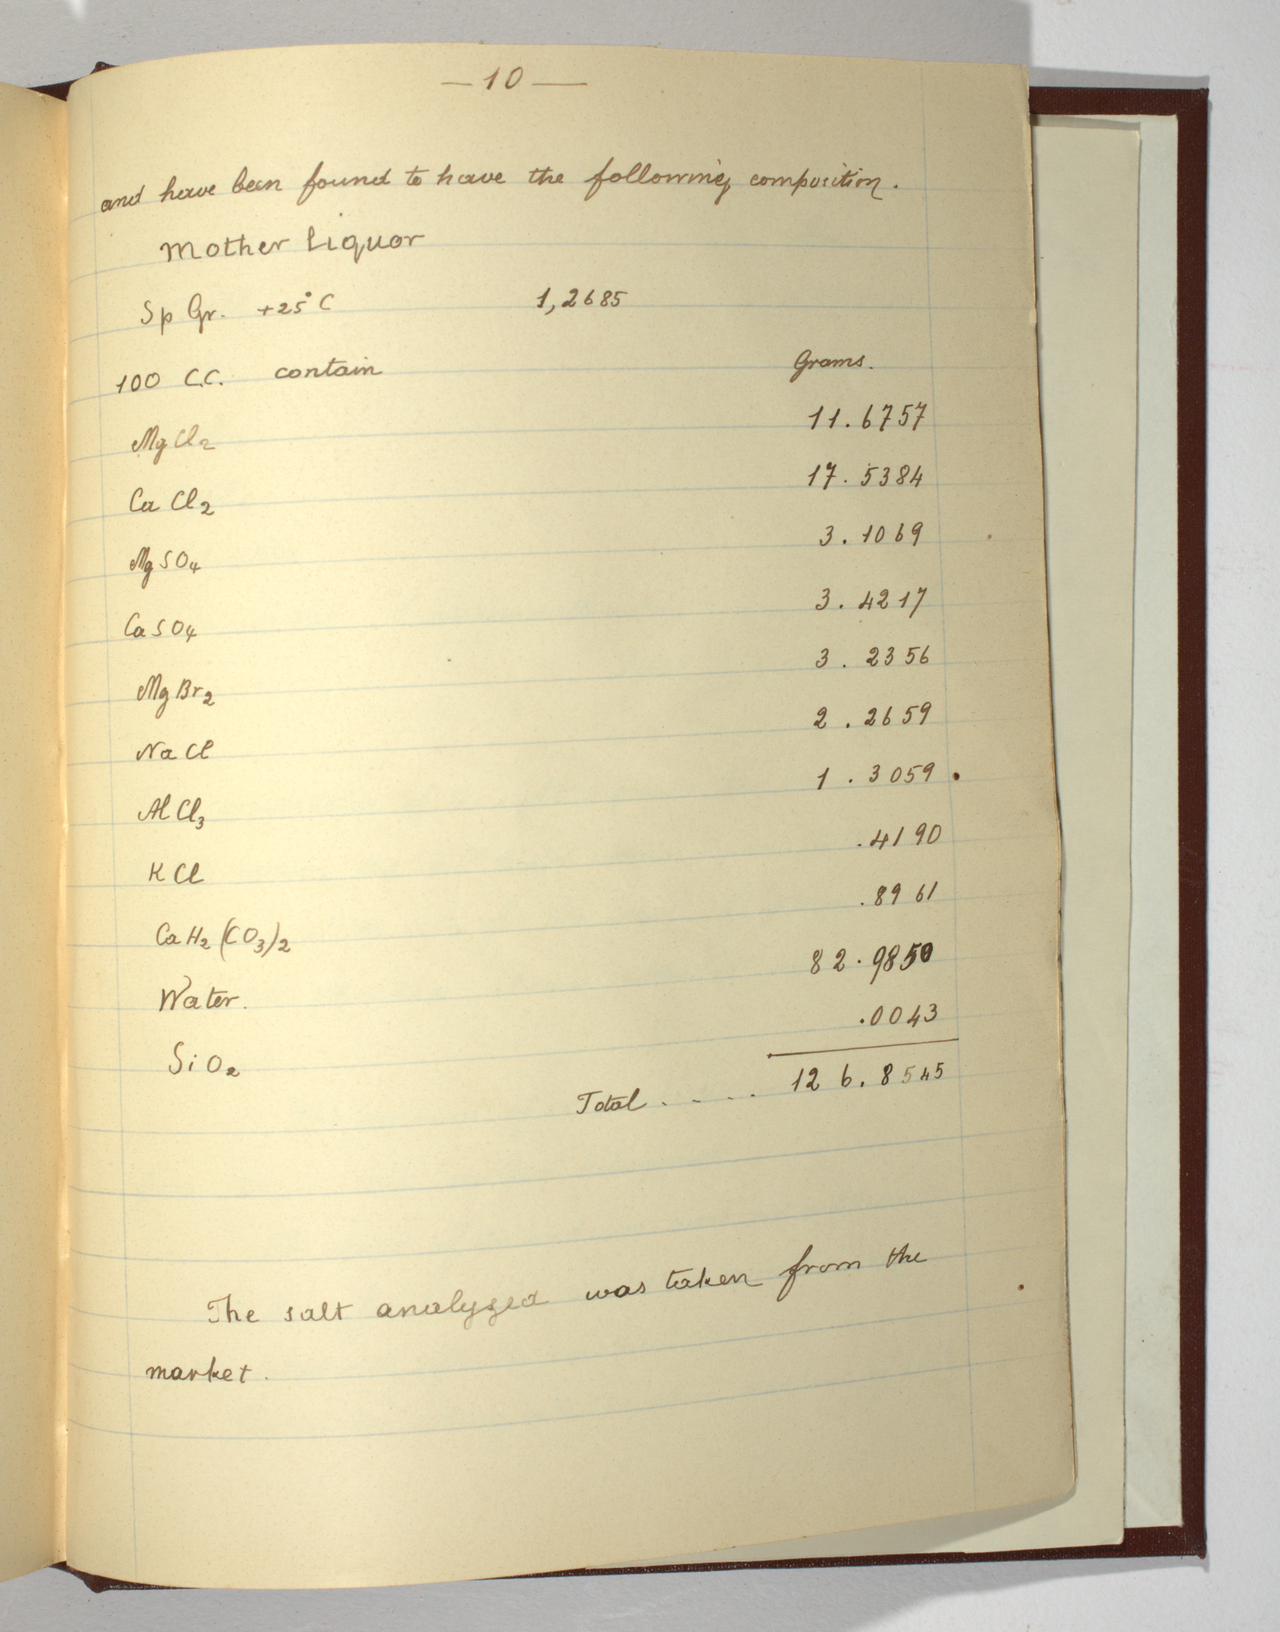 — 10 —
and have been found to have the following composition.
Mother liquor
Sp Gr. +25°C 1,2685
100 C.C. contain Grams.
MgCl2 11.6757
CaCl2 17.5384
MgSO4 3.1069
CaSO4 3.4217
MgBr2 3.2356
NaCl 2.2659
AlCl3 1.3059
KCl .4190
CaH2(CO3)2 .8961
Water. 82.9850
SiO2 .0043
Total . . . . . 126.8545
The salt analyzed was taken from the
market.